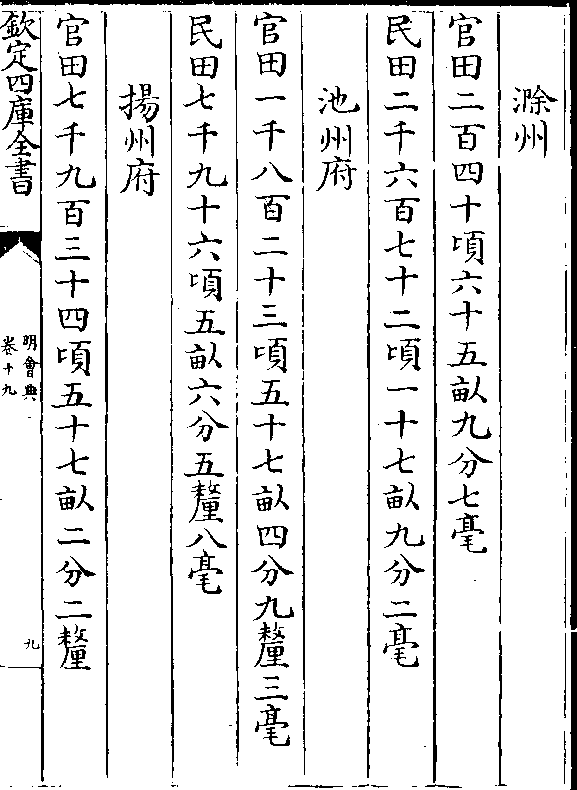 滁州
官田二百四十頃六十五畝九分七毫
民田二千六百七十二頃一十七畝九分二毫
池州府
官田一千八百二十三頃五十七畝四分九釐三毫
民田七千九十六頃五畝六分五釐八毫
揚州府
官田七千九百三十四頃五十七畝二分二釐
欽定四庫全書
明會典
卷十九
九